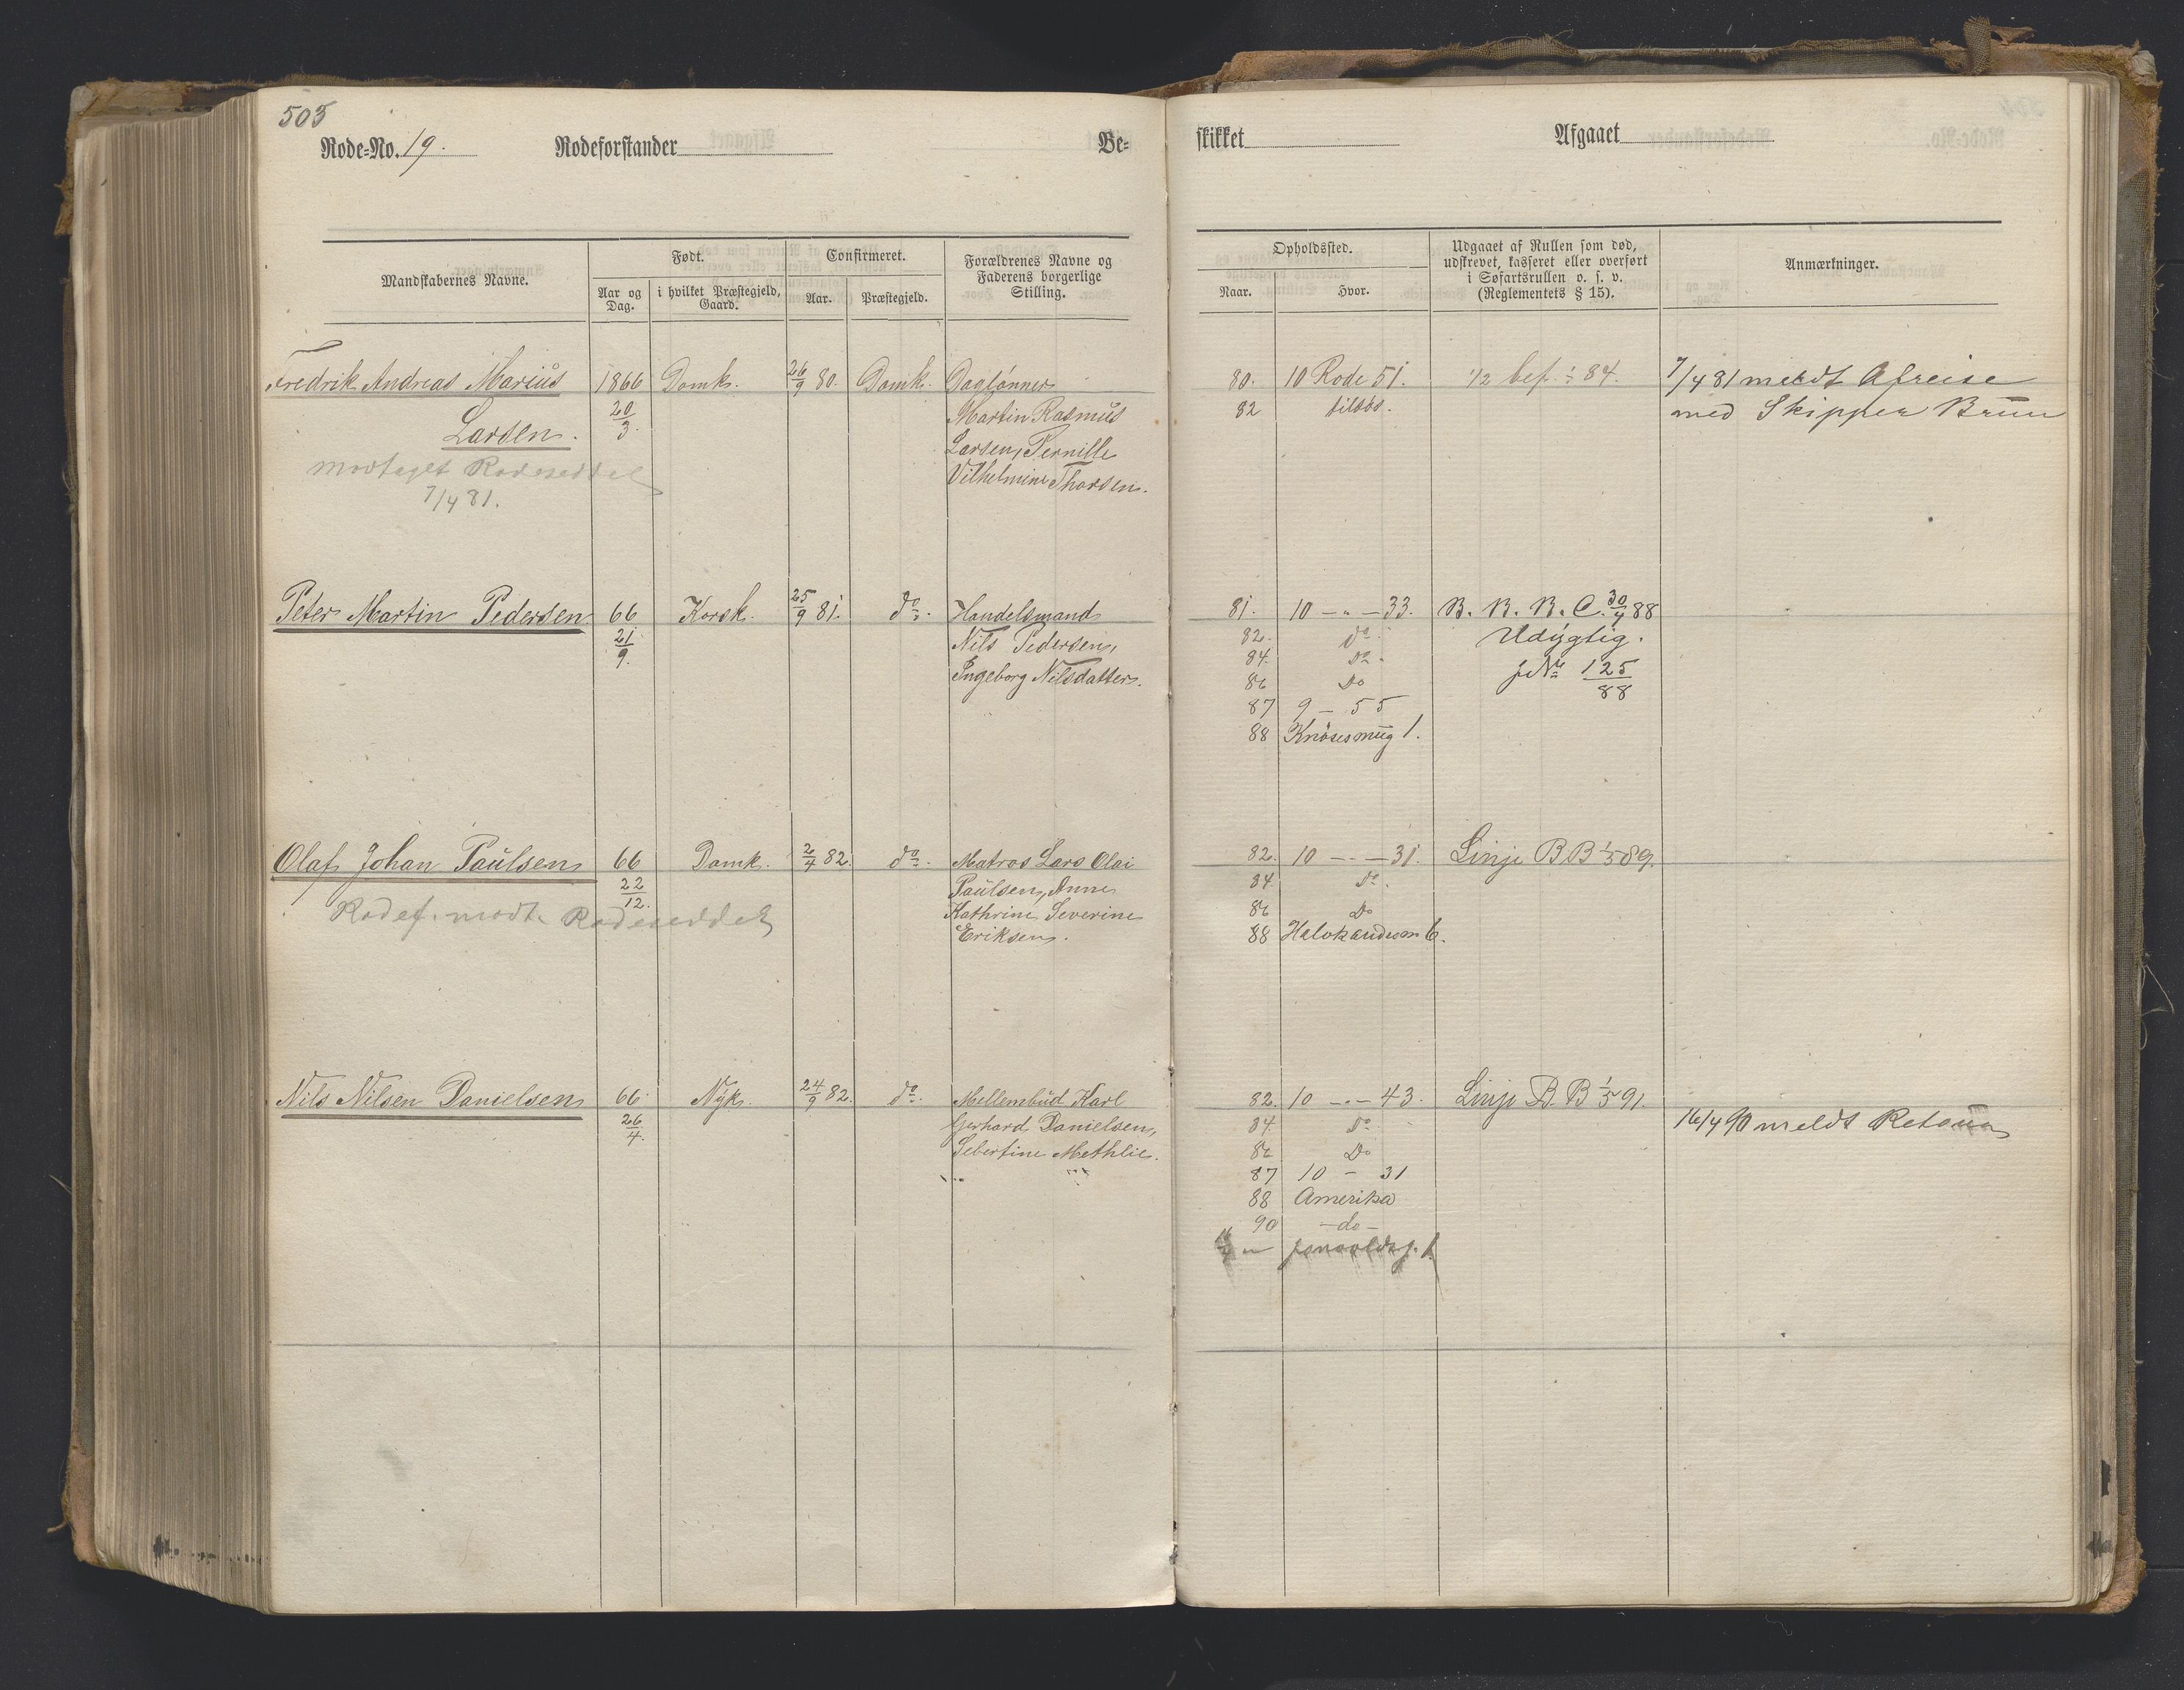 503
Rode=No. 19. Rodeforstander Be=
skikket Afgaaet
Mandskabernes Navne. Født. Confirmeret. Forældrenes Navne og Faderens borgerlige Stilling.
Aar og Dag. i hvilket Præstegjeld, Gaard. Aar. Præstegjeld.
Opholdssted. Udgaaet af Rullen som død, udskrevet, kasseret eller overført i Søfartsrullen o. s. v. (Reglementets § 15). Anmærkninger.
Naar. Hvor.
Fredrik Andreas Marius 1866 Domk. 26/9 80. Domk. Daglønner
20/3. Martin Rasmus
Larsen. Larsen, Pernille
modtaget Rodeseddel Vilhelmine Thorsen.
7/4 81.
80. 10 Rode 51. 1/2 bef. ÷ 84. 7/4 81 meldt Afreise
82 tilsøs. med Skipper Bruun
Peter Martin Pedersen 66 Korsk. 25/9 81. do. Handelsmand
21/9. Nils Pedersen,
Ingeborg Nilsdatter.
81. 10 — " — 33. B. B. B. C. 30/4 88
82. do. Udygtig.
84. do. 125/88
86 Do
87 9 — 55
88 Knøsesmug 1.
Olaf Johan Paulsen 66 Domk. 2/4 82. do. Matros Lars Olai
22/12. Paulsen, Anne
Rodef. modt. Rodeseddel Kathrine Severine
Eriksen.
82. 10 — " — 31. Linje BB 1/5 89.
84. do.
86 Do
88 6.
Nils Nilsen Danielsen 66 Nyk. 24/9 82. do. Mellembud Karl
26/4. Gerhard Danielsen,
Sebertine Methlie.
82. 10 — " — 43. Linje B. B 1/5 91.
84. do. 16/4 90 meldt Retour
86 Do
87 10 — 31
88 Amerika
90 — do —